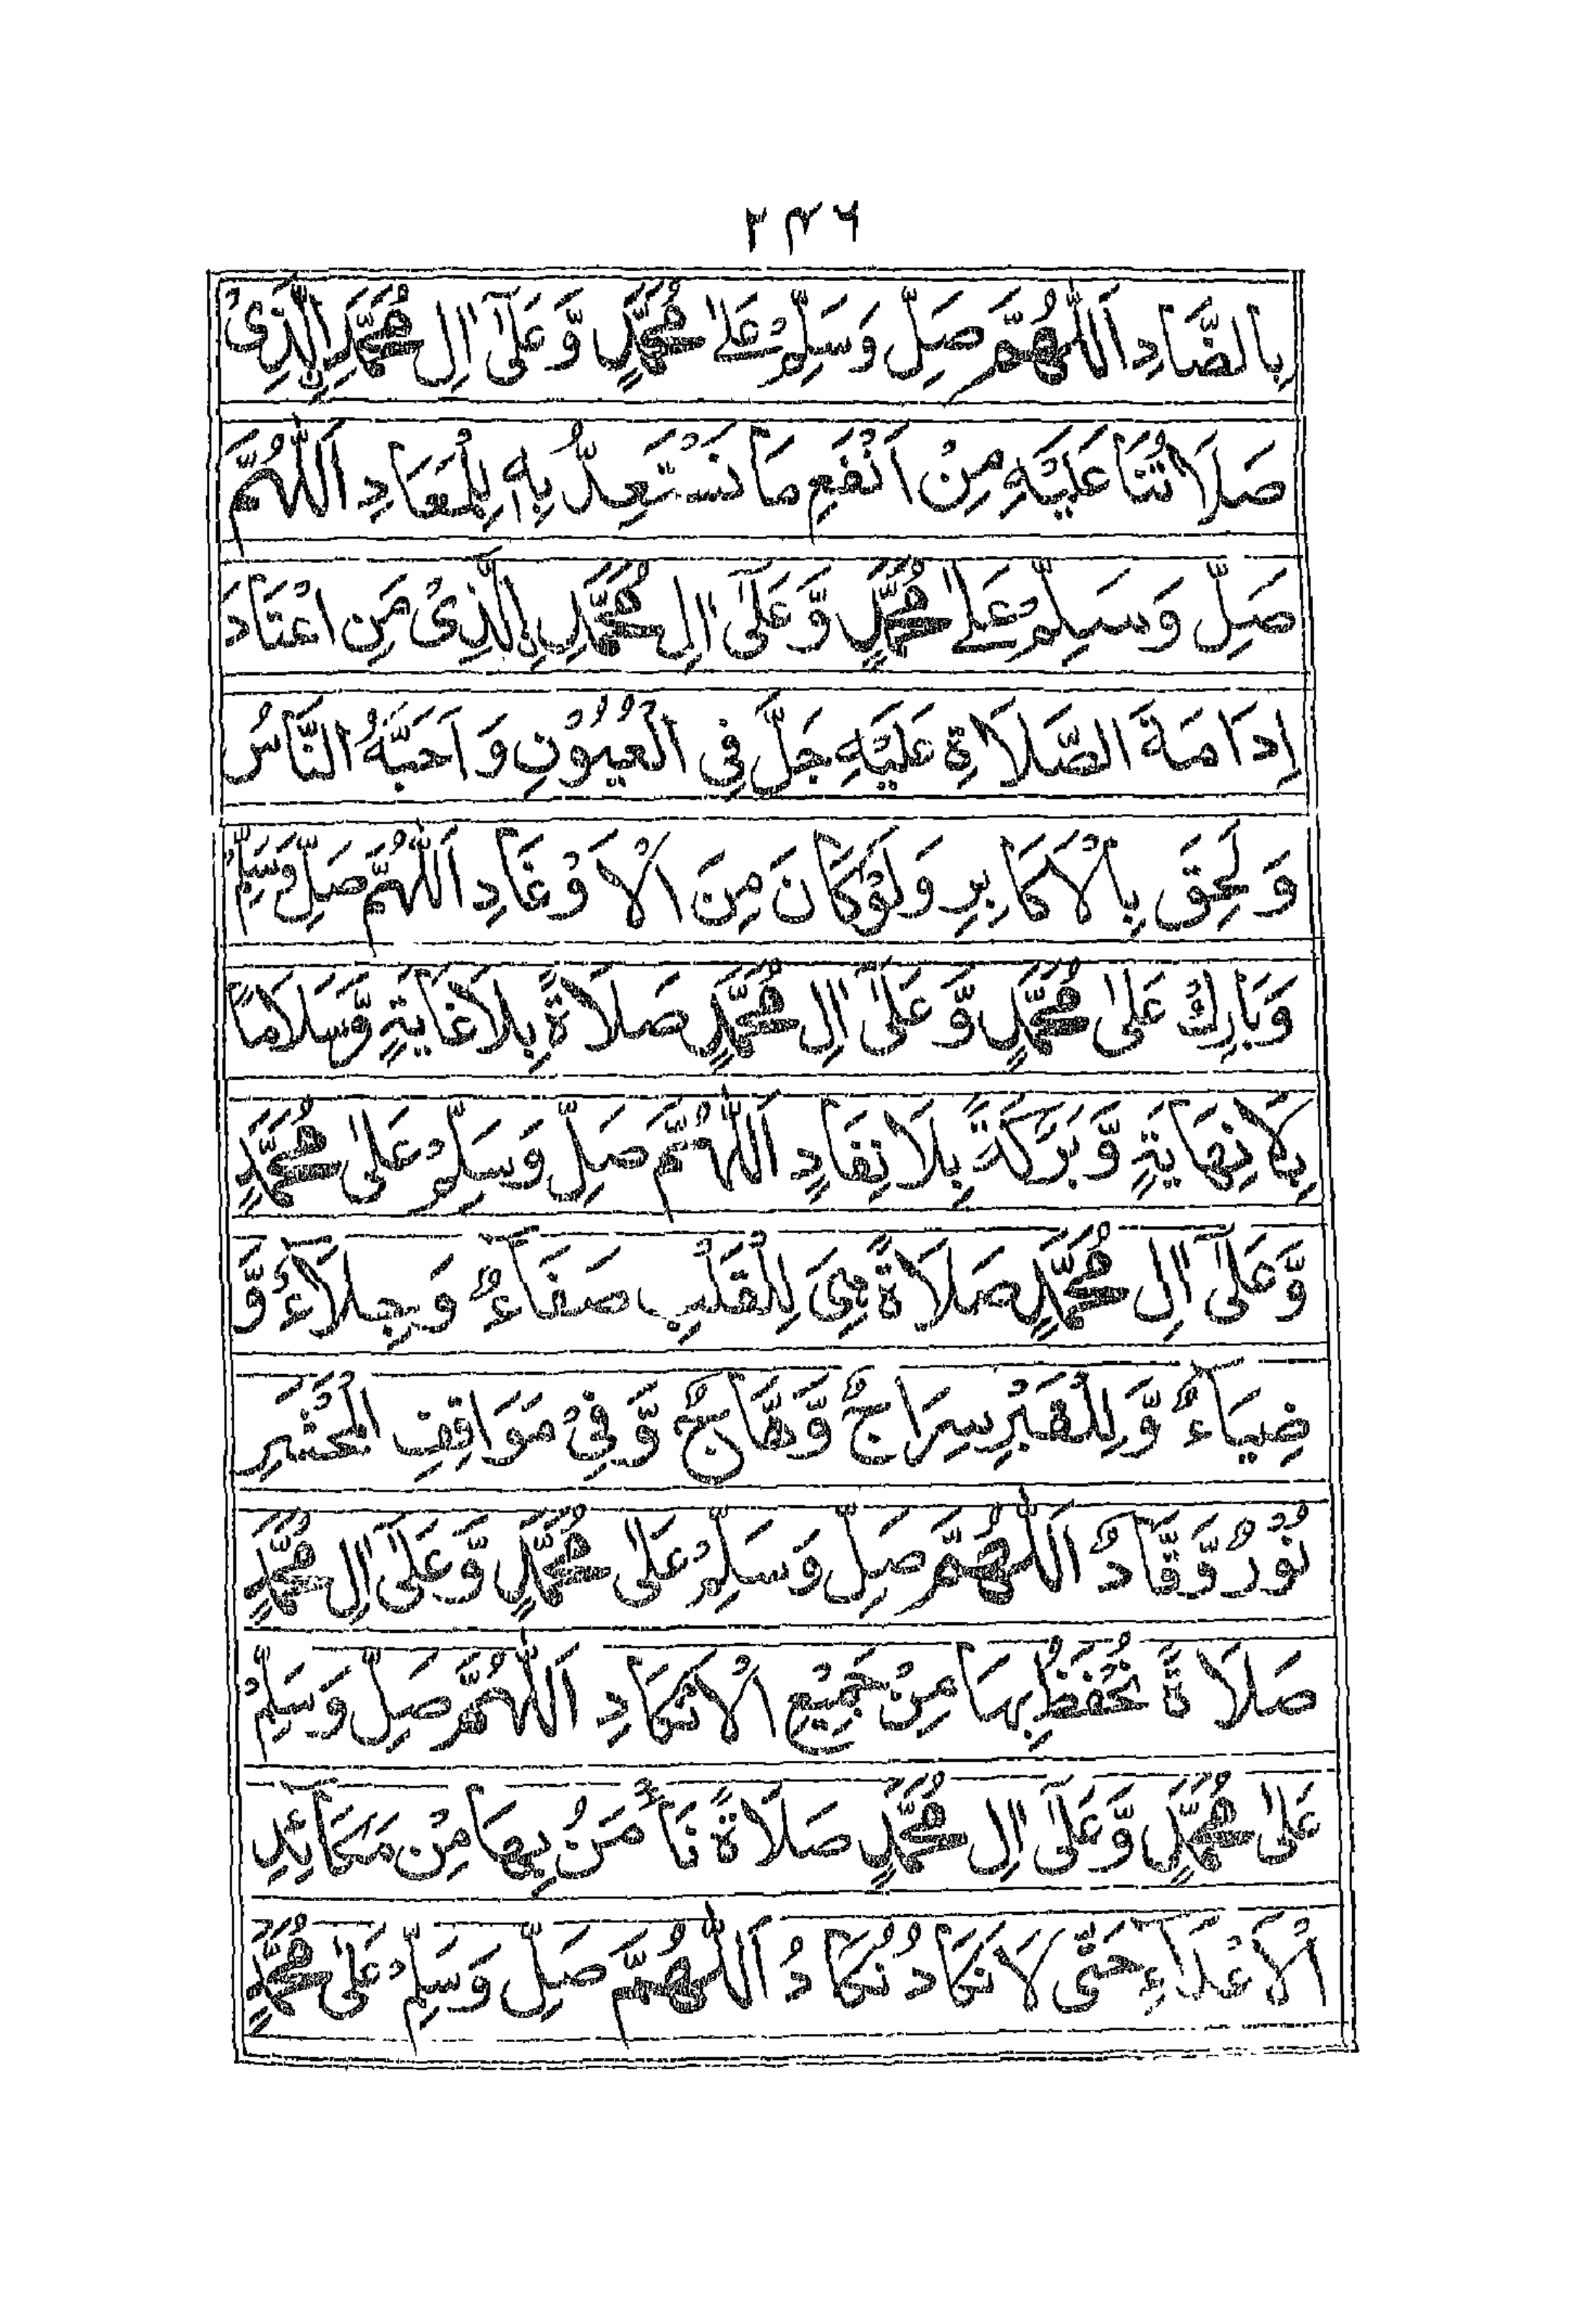 ٢٣٦
بِالضَّادِ اَللّٰهُمَّ صَلِّ وَسَلِّمْ عَلٰى مُحَمَّدٍ وَّعَلٰٓى اٰلِ مُحَمَّدِ ۣالَّذِىْ
صَلَاتُنَا عَلَيْهِ مِنْ اَنْفَعِ مَا نَسْتَعِدُّ بِهٖ لِلْمَعَادِ اَللّٰهُمَّ
صَلِّ وَسَلِّمْ عَلٰى مُحَمَّدٍ وَّعَلٰٓى اٰلِ مُحَمَّدِ ۣالَّذِىْ مَنِ اعْتَادَ
اِدَامَةَ الصَّلَاةِ عَلَيْهِ جَلَّ فِى الْعُيُوْنِ وَاَحَبَّهُ النَّاسُ
وَلَحِقَ بِالْاَكَابِرِ وَلَوْكَانَ مِنَ الْاَوْغَادِ اَللّٰهُمَّ صَلِّ وَسَلِّمْ
وَبَارِكْ عَلٰى مُحَمَّدٍ وَّعَلٰٓى اٰلِ مُحَمَّدٍ صَلَاةً بِلَاغَايَةٍ وَّسَلَامًا
بِلَانِهَايَةٍ وَّبَرَكَةً بِلَانِفَادٍ اَللّٰهُمَّ صَلِّ وَسَلِّمْ عَلٰى مُحَمَّدٍ
وَّعَلٰٓى اٰلِ مُحَمَّدٍ صَلَاةً هِىَ لِلْقَلْبِ صَفَآءٌ وَجِلَآءٌ وَّ
ضِيَآءٌ وَّلِلْقَبْرِ سِرَاجٌ وَّهَّاجٌ وَّفِىْ مَوَاقِفِ الْمَحْشَرِ
نُوْرٌ وَّقَّادٌ اَللّٰهُمَّ صَلِّ وَسَلِّمْ عَلٰى مُحَمَّدٍ وَّعَلٰٓى اٰلِ مُحَمَّدٍ
صَلَاةً نُحْفَظُ بِهَا مِنْ جَمِيْعِ الْاَنْكَادِ اَللّٰهُمَّ صَلِّ وَسَلِّمْ
عَلٰى مُحَمَّدٍ وَّعَلٰٓى اٰلِ مُحَمَّدٍ صَلَاةً نَأْمَنُ بِهَا مِنْ مَكَآئِدِ
الْاَعْدَآءِ حَتّٰى لَا نَكَادُ نُكَادُ اَللّٰهُمَّ صَلِّ وَسَلِّمْ عَلٰى مُحَمَّدٍ